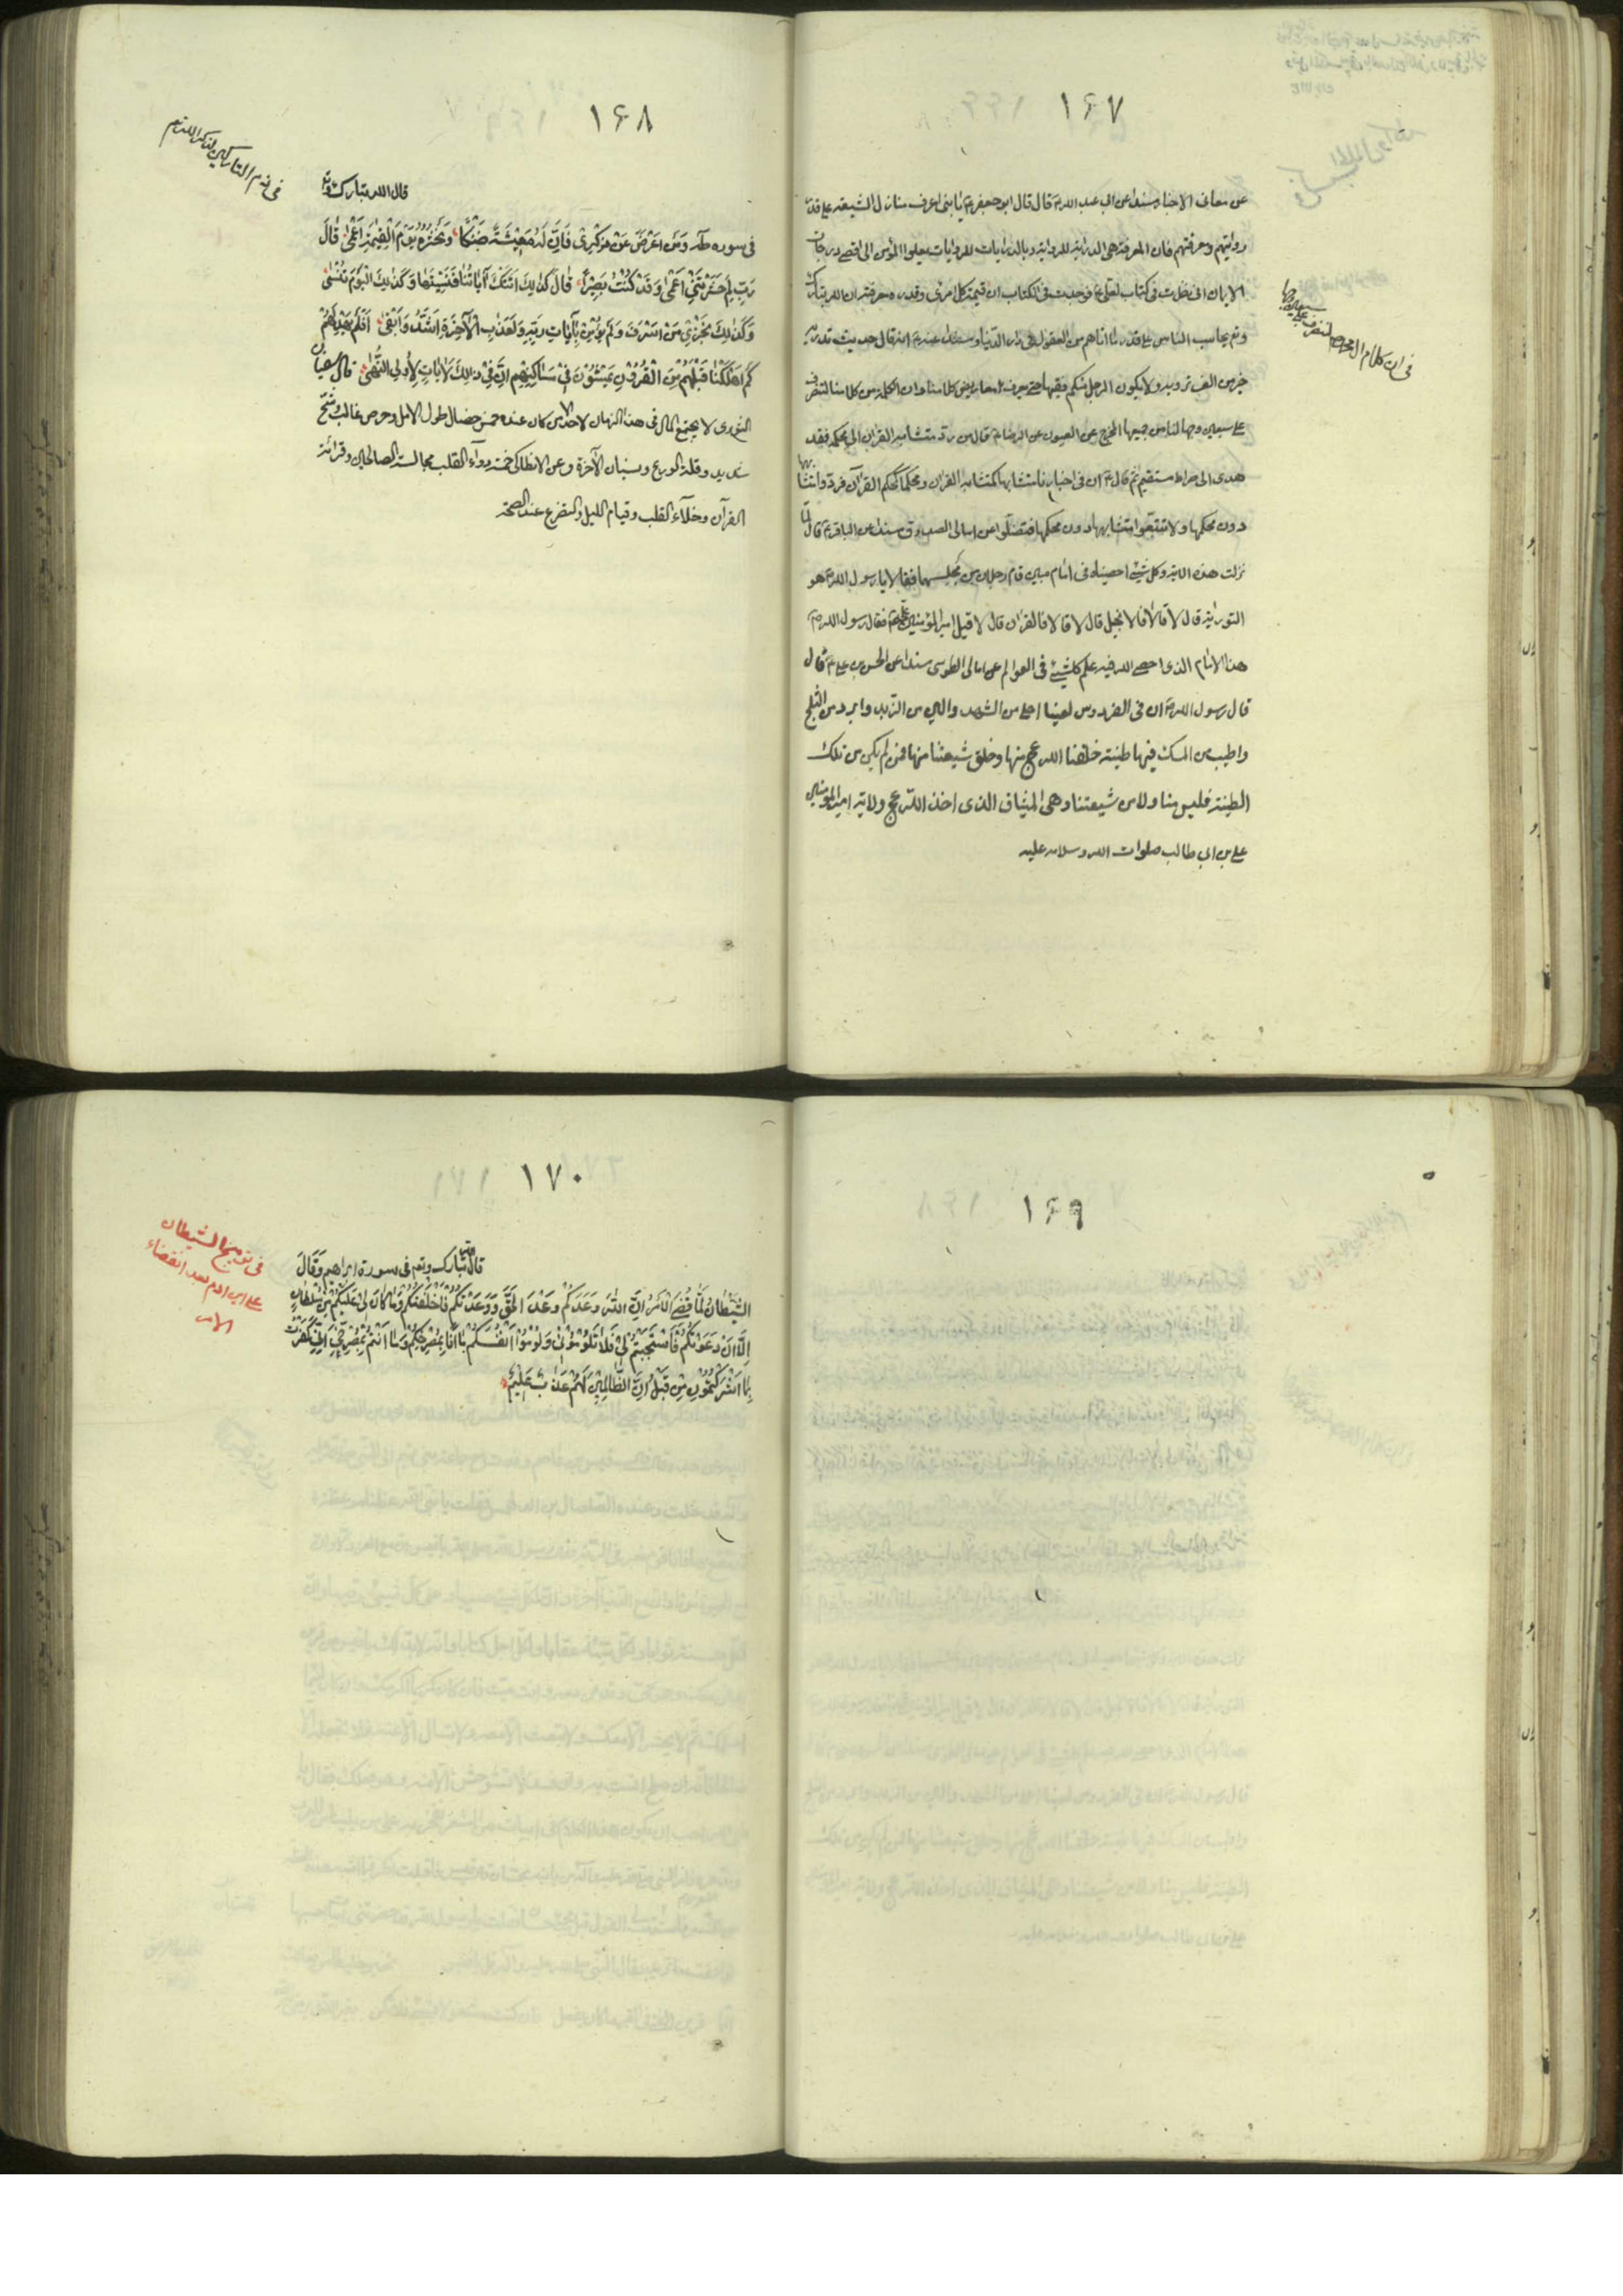 ١۶٧
عن معانی الاخبار مسندا عن ابی عبد الله ع قال قال ابو جعفر ع یا بنی اعرف منازل الشیعه علی قدر
روایتهم و معرفتهم فان المعرفة هی الدرایة للروایة و بالدرایات للروایات یعلوا المؤمن الی اقصی درجات
الایمان انی نظرت فی کتاب لعلی ع فوجدت فی الکتاب ان قیمة کل امرئ و قدره معرفته ان الله تبارک
و تع یحاسب الناس علی قدر ما اتاهم من العقول فی دار الدنیا و مسندا عنه ع انه قال حدیث تدریه
خیر من الف ترویه ولا یکون الرجل منکم فقیها حتی یعرف معاریض کلامنا وان الکلمة من کلامنا لتنصرف
علی سبعین وجها لنا من جمیعها المخرج عن العیون عن الرضا ع قال من رد متشابه القرآن الی محکمه فقد
هدی الی صراط مستقیم ثم قال ع ان فی اخبارنا متشابها کمتشابه القرآن و محکما کمحکم القرآن فردوا متشابهها
دون محکمها ولا تتبعوا متشابهها دون محکمها فتضلوا عن امالی الصدوق مسندا عن الباقر ع قال لما
نزلت هذه الایة وکل شیء احصیناه فی امام مبین قام رجلان من مجلسهما فقالا یا رسول الله ص هو
التوریة قال لا قالا فالانجیل قال لا قالا فالقرآن قال لا قبل امیر المؤمنین علی ع فقال رسول الله ص
هذا الامام الذی احصی الله فیه علم کل شیء فی العوالم عن امالی الطوسی مسندا عن الحسن بن علی ع قال
قال رسول الله ص ان فی الفردوس لعینا احلی من الشهد والین من الزبد وابرد من الثلج
واطیب من المسک فیها طینة خلقنا الله عج منها وخلق شیعتنا منها فمن لم یکن من تلک
الطینة فلیس منا ولا من شیعتنا و هی المیثاق الذی اخذ الله عج ولایة امیر المومنین
علی بن ابی طالب صلوات الله و سلامه علیه
فی ان کلام
١۶٨
فی ذم التارکین لذکر الله تع
قال الله تبارک و تع
فی سوره طه وَمَن اَعْرَضَ عَنْ ذِکْرِی فَاِنَّ لَهُ مَعِیْشَةً ضَنْکًا وَنَحْشُرُهُ یَوْمَ الْقِیٰمَةِ اَعْمٰی قَالَ
رَبِّ لِمَ حَشَرْتَنِیْ اَعْمٰی وَقَدْ کُنْتُ بَصِیْرًا قَالَ کَذٰلِکَ اَتَتْکَ آیَاتُنَا فَنَسِیْتَهَا وَکَذٰلِکَ الْیَوْمَ تُنْسٰی
وَکَذٰلِکَ نَجْزِیْ مَنْ اَسْرَفَ وَلَمْ یُؤْمِنْ بِآیَاتِ رَبِّهِ وَلَعَذَابُ الْآخِرَةِ اَشَدُّ وَاَبْقٰی اَفَلَمْ یَهْدِ لَهُمْ
کَمْ اَهْلَکْنَا قَبْلَهُمْ مِنَ الْقُرُوْنِ یَمْشُوْنَ فِیْ مَسَاکِنِهِمْ اِنَّ فِیْ ذٰلِکَ لَآیَاتٍ لِاُولِی النُّهٰی قال سفیان
الثوری لا یجتمع المال فی هذا الزمان لاحد الا من کان عنده خمس خصال طول الامل و حرص غالب و شح
شدید و قلة الورع و نسیان الآخرة و عن الانطاکی خمسة دواء القلب مجالسة الصالحین وقرائة
القرآن و خلاء القلب و قیام اللیل و التضرع عند الصحة
١۶٩
١٧٠
فی توبیخ الشیطان
علی ابن ادم بعد انقضاء
الامر
قال تبارک و تع فی سورة ابراهیم وَقَالَ
الشَّیْطَانُ لَمَّا قُضِیَ الْاَمْرُ اِنَّ اللّٰهَ وَعَدَکُمْ وَعْدَ الْحَقِّ وَوَعَدْتُکُمْ فَاَخْلَفْتُکُمْ وَمَا کَانَ لِیَ عَلَیْکُمْ مِنْ سُلْطَانٍ
اِلَّا اَنْ دَعَوْتُکُمْ فَاسْتَجَبْتُمْ لِیْ فَلَا تَلُوْمُوْنِیْ وَلُوْمُوْا اَنْفُسَکُمْ مَا اَنَا بِمُصْرِخِکُمْ وَمَا اَنْتُمْ بِمُصْرِخِیَّ اِنِّیْ کَفَرْتُ
بِمَا اَشْرَکْتُمُوْنِ مِنْ قَبْلُ اِنَّ الظَّالِمِیْنَ لَهُمْ عَذَابٌ اَلِیْمٌ